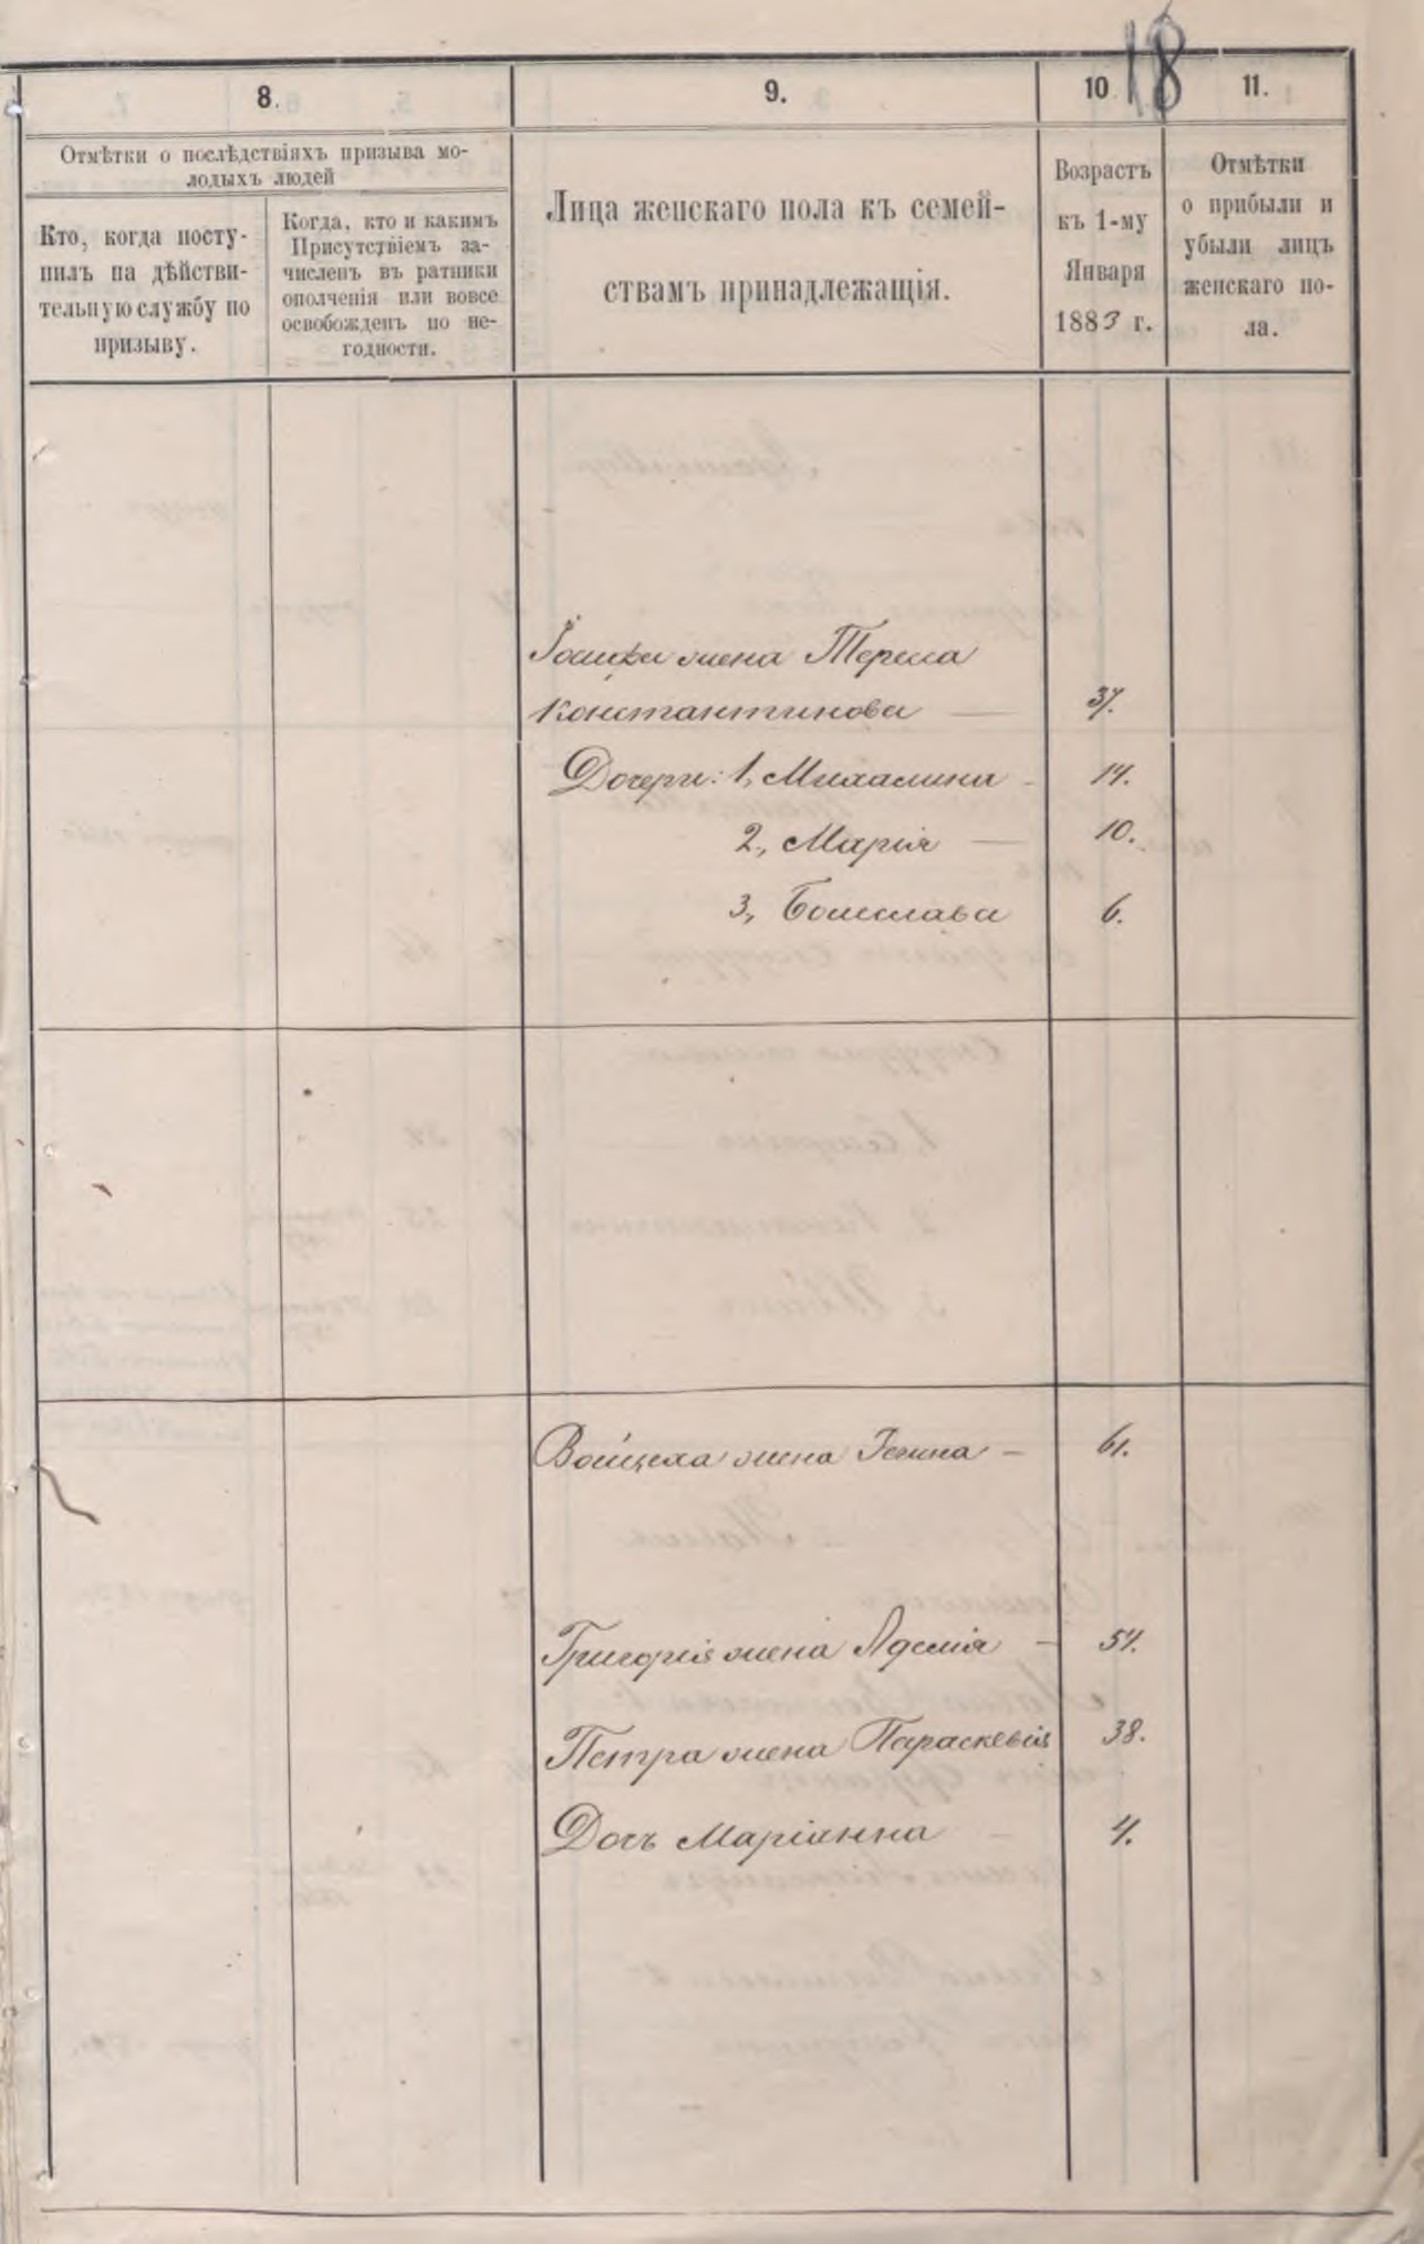 18
8.
9.
10
11.
Отмѣтки о послѣдствіяхъ призыва мо-
лодыхъ людей
Кто, когда посту-
пилъ на дѣйстви-
тельную службу по
призыву.
Когда, кто и какимъ
Присутствіемъ за-
численъ въ ратники
ополченія или вовсе
освобожденъ по не-
годности.
Лица женскаго пола къ семей-
ствамъ принадлежащія.
Возрастъ
къ 1-му
Января
1883 г.
Отмѣтки
о прибыли и
убыли лицъ
женскаго по-
ла.
Іосифа жена Тереса
Константинова — 37.
Дочери: 1, Михалина - 14.
2, Марія — 10.
3, Болеслава 6.
Войцеха жена — 61.
Григорія жена Аделія — 54.
Петра жена Параскевія 38.
Дочь Маріанна — 4.